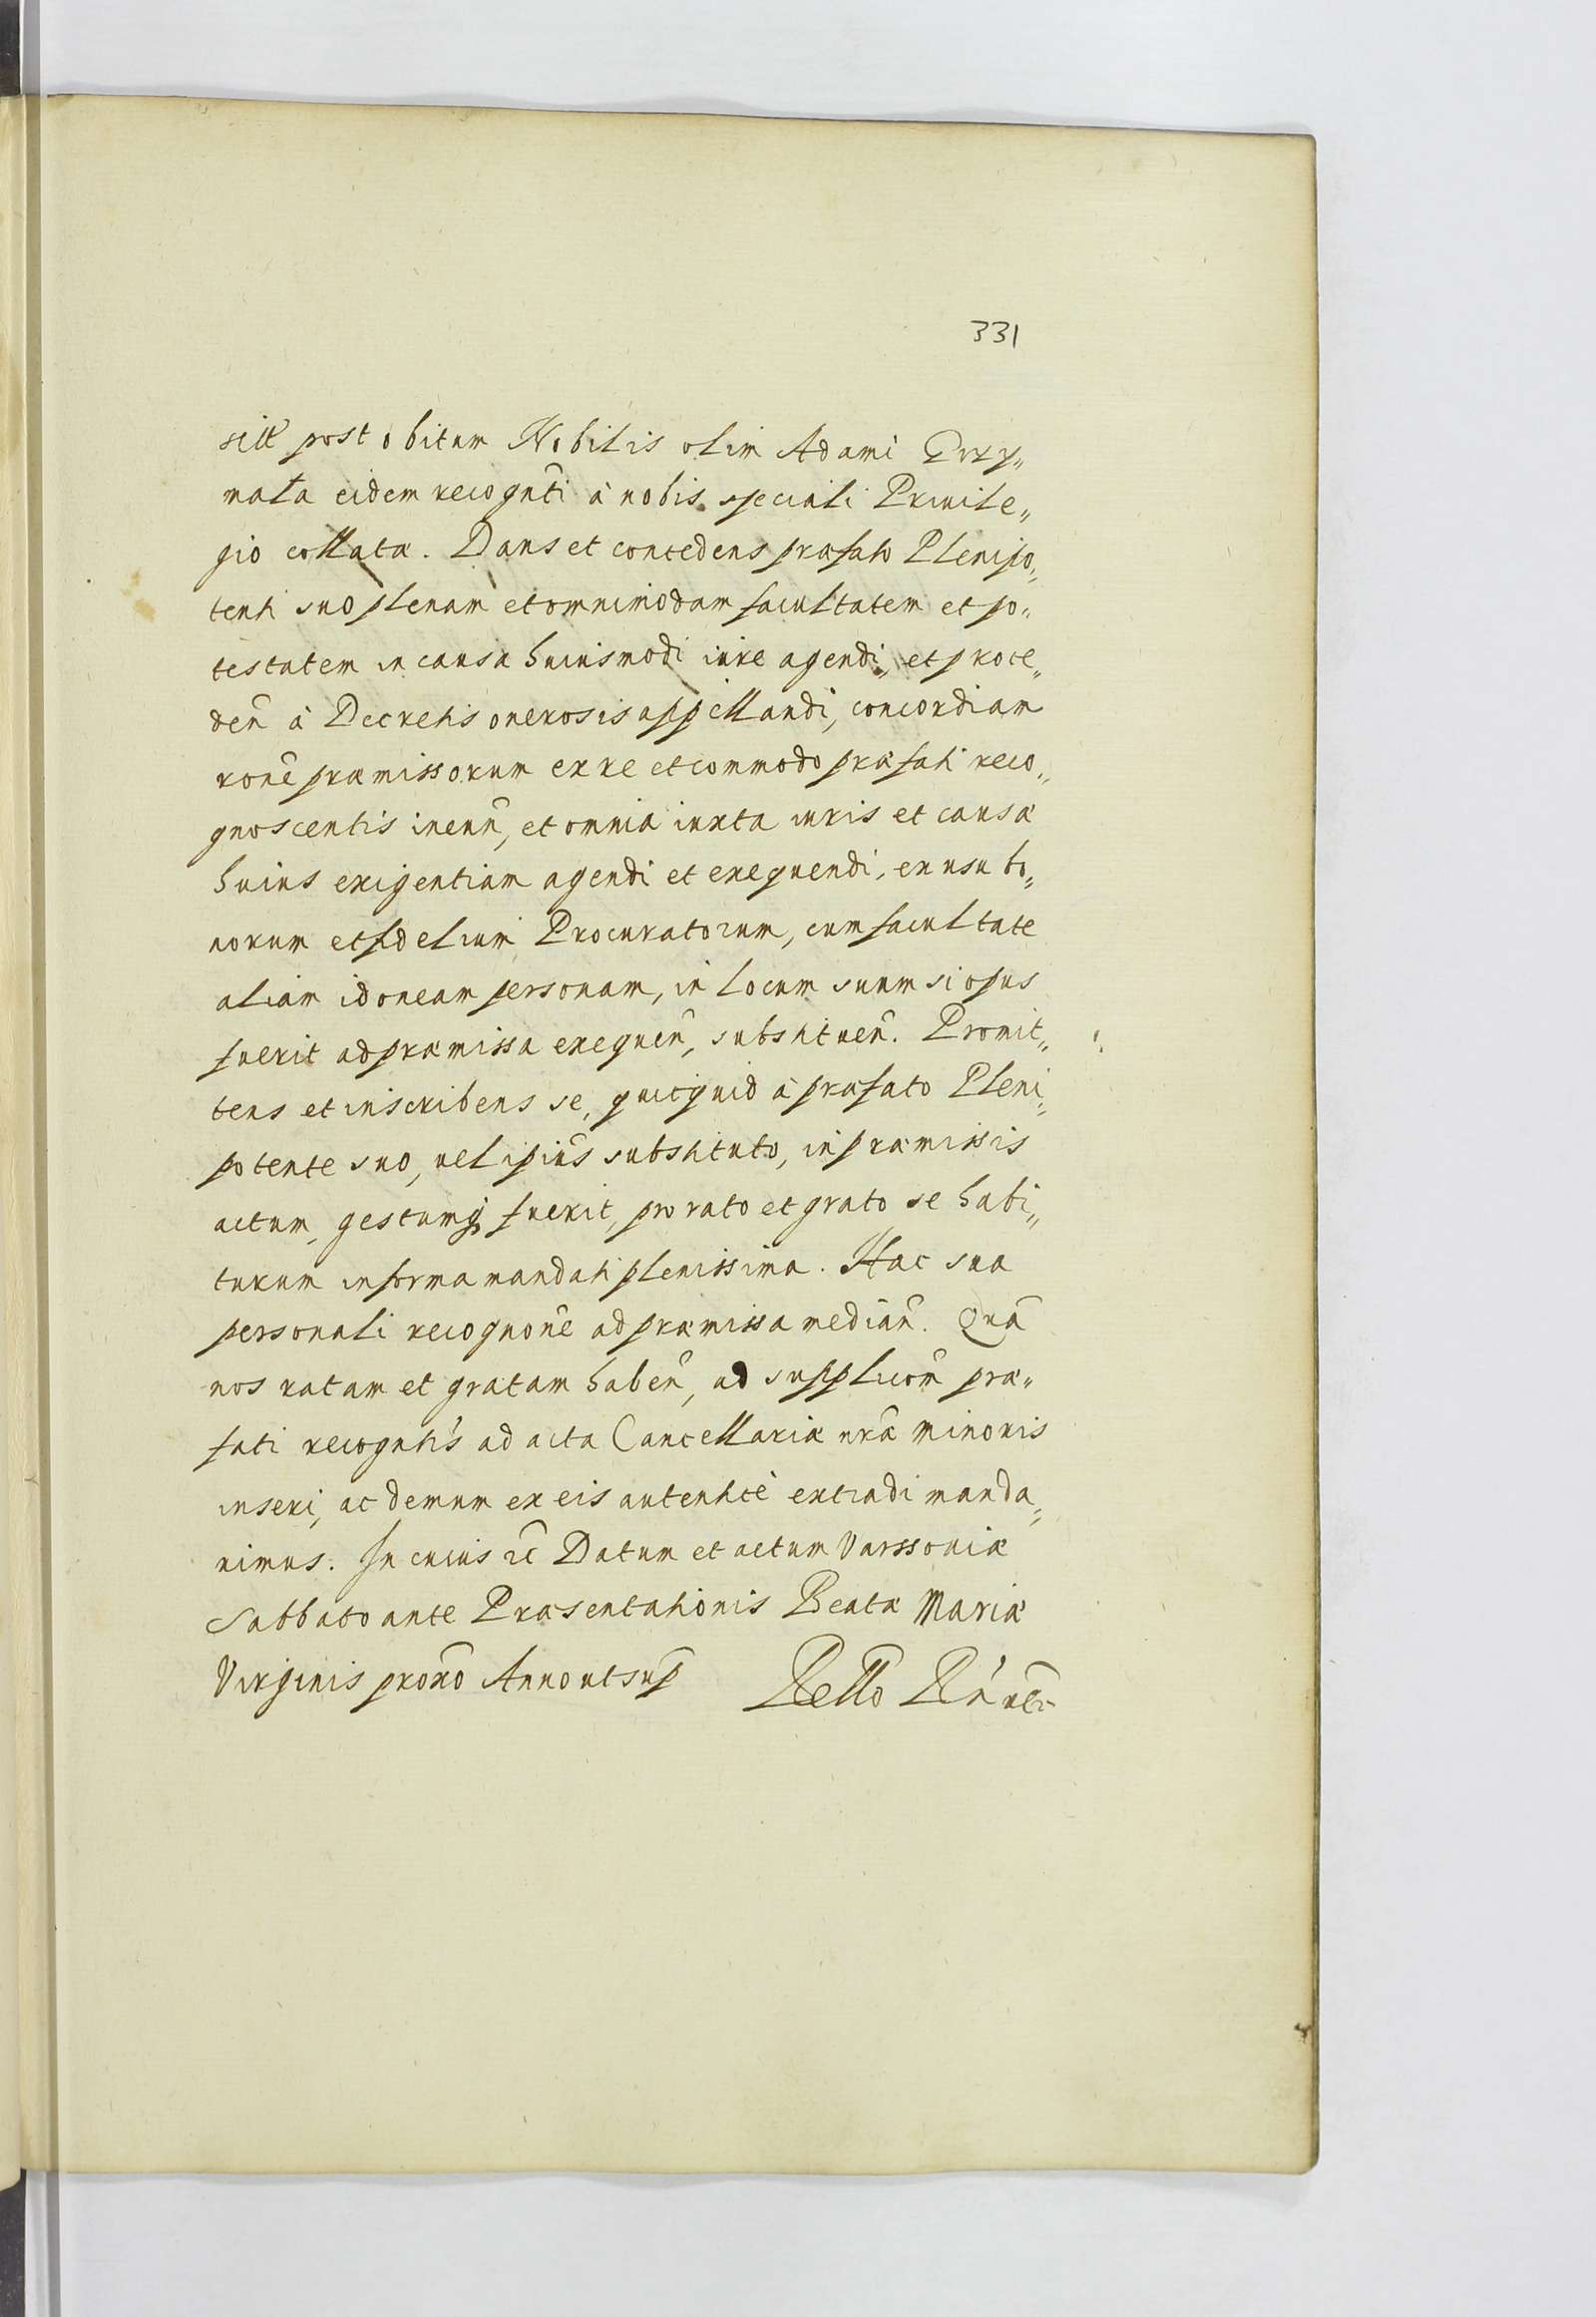 331
sitt post obitum Nobilis olim Adami Grzy„
mała eidem recogn̄ti à nobis speciali Priuile„
gio collatæ. Dans et concedens præfato Plenipo„
tenti suo plenam et omnimodam facultatem et po„
testatem in causa huiusmodi iure agendi, et proce„
den̄ à Decretis onerosis appellandi, concordiam
rōne præmissorum ex re et commodo præfati reco„
gnoscentis ineun̄, et omnia iuxta iuris et causæ
huius exigentiam agendi et exequendi, ex usu bo„
norum et fidelium Procuratorum, cum facultate
aliam idoneam personam, in locum suum si opus
fuerit ad præmissa exequen̄, substituen̄. Promit„
tens et inscribens se, quicquid à præfato Pleni„
potente suo, uel ipius substituto, in præmissis
actum, gestumq; fuerit, pro rato et grato se habi„
turum in forma mandati plenissima. Hac sua
personali recognōne ad præmissa median̄. Quā
nos ratam et gratam haben̄, ad supplicōm præ„
fati recogntis ad acta Cancellariæ nrǣ minoris
inseri, ac demum ex eis autenticè extradi manda„
uimus. In cuius rē Datum et actum Varssouiæ
Sabbato ante Præsentationis Beatæ Mariæ
Virginis proxō Anno ut sup̄